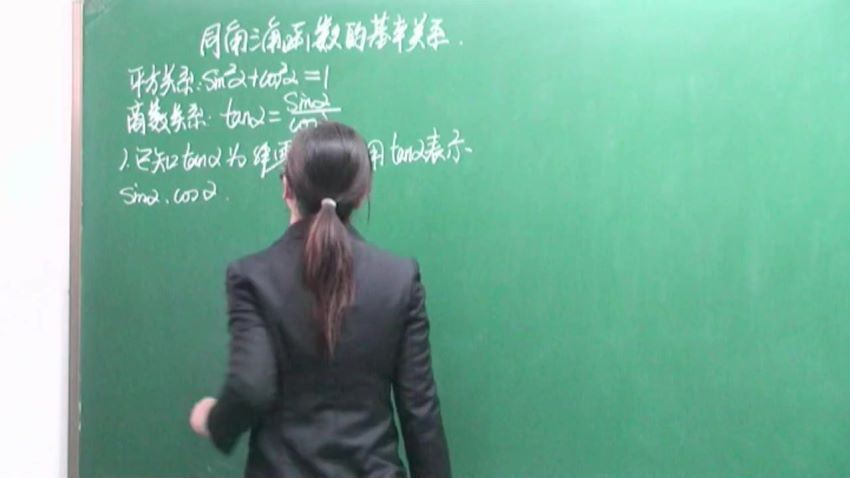 同角三角函数的基本关系.
平方关系:sin²α+cos²α=1
商数关系: tanα=sinα/cos
1.已知tanα为非 用tanα表示
sinα.cosα.